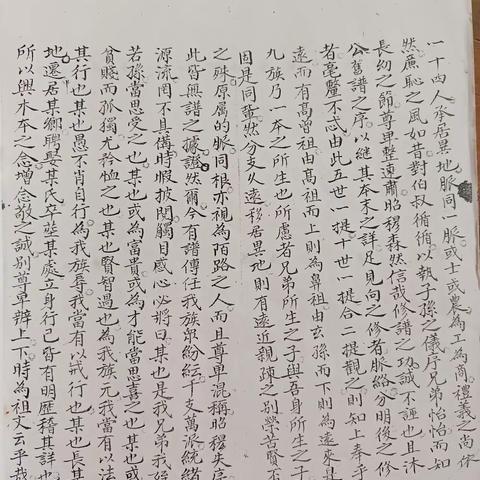 一十四人承居異地脈同一脈或士或農為工為商禮義之尚依
然廉恥之風如昔對伯叔循循以執子孫之儀序兄弟怡怡而如
長幼之節尊卑整速肅昭穆森然信哉修譜之功誠不誣也且沐
公舊譜之序以継其本末之詳足見向之修者脈絡分明後之修
者毫釐不忒由此五世一提十世一提合二提觀之則知上奉乎
遠而有高曾祖由高祖而上則為鼻祖由玄孫而下則為遠來是
九族乃一本之所生也所慮者兄弟所生之子與吾身所生之子
固是同氣然分支久遠移居異地則有遠近親疎之別学苦賢不
之殊原属的脈同根亦視為陌路之人而且尊卑混稱昭穆失序
此皆無譜之據議然爾今有譜傳任我族衆紛紜千支萬派統緒
源流罔不具備時暇披閱觸目感心必將曰某也是我兄弟我姪
若孫當思受之也某也或為富貴或為才能當思喜之也某也或
貧賤而孤獨尤矜恤之也某也賢智過也為我族元我當有以法
其行也某也愚不肖自行為我族辱我當有以戒行也某也長其
地遷居某鄉聘娶某氏卒塟某處立身行己皆有明歷稽其詳也
所以興水本之念增念敬之誠別尊卑辨上下時為祖文云乎哉